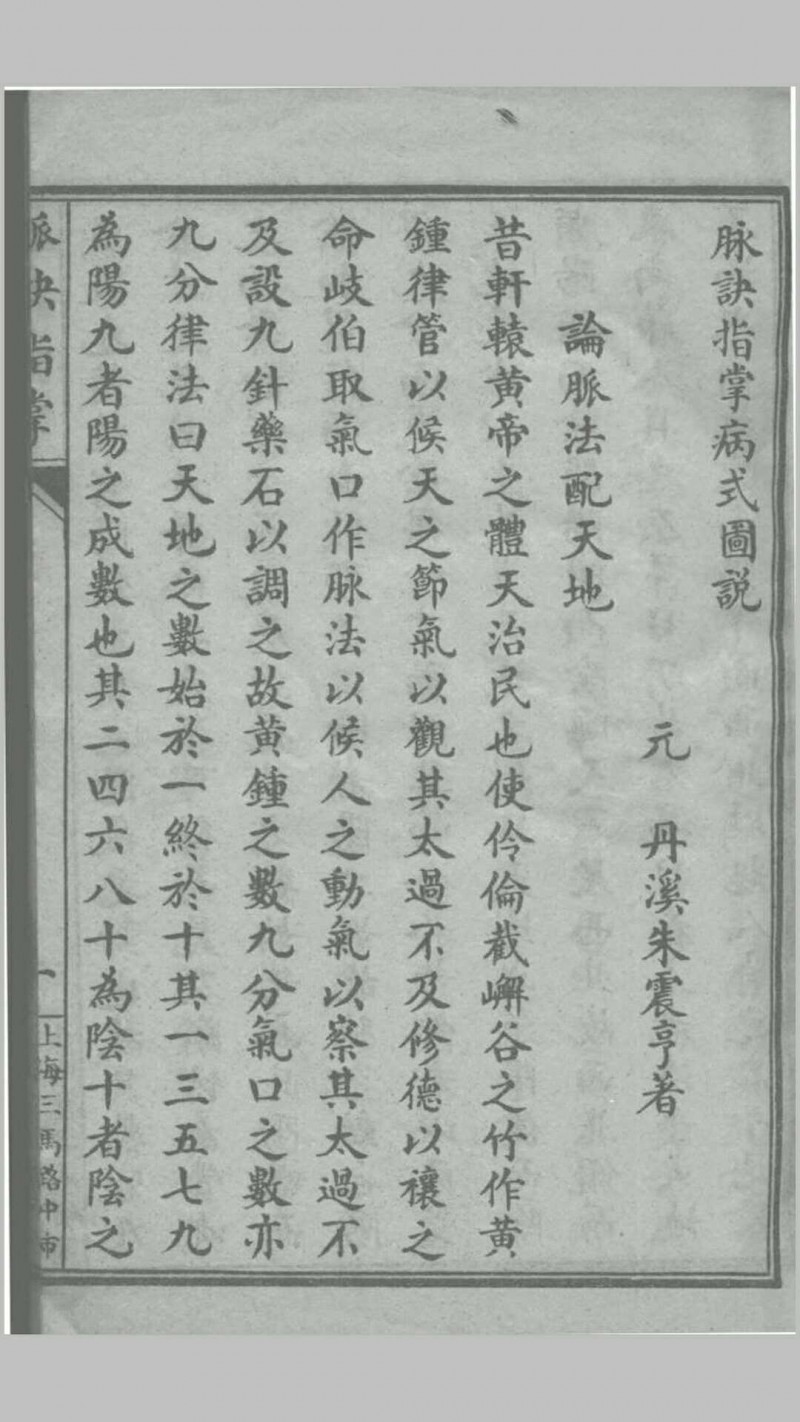 脉訣指掌病式圖説
元 丹溪朱震亨著
論脈法配天地
昔軒轅黄帝之體天治民也使伶倫截嶰谷之竹作黄
鍾律管以候天之節氣以觀其太過不及修德以禳之
命岐伯取氣口作脉法以候人之動氣以察其太過不
及設九針藥石以調之故黄鍾之數九分氣口之數亦
九分律法曰天地之數始於一終於十其一三五七九
為陽九者陽之成數也其二四六八十為陰十者陰之
脈訣指掌
一
上海三馬路中市